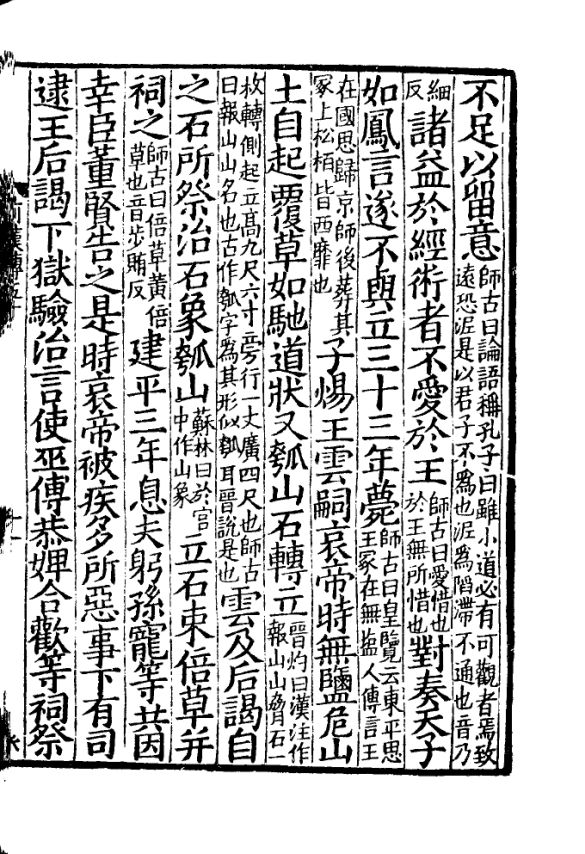 不足以留意師古曰論語稱孔子曰雖小道必有可觀者焉致遠恐泥是以君子不爲也泥爲陷滯不通也音乃
細反諸益於經術者不愛於王師古曰愛惜也於王無所惜也對奏天子
如鳳言遂不與立三十三年薨師古曰皇覽云東平思王冢在無盐人傳言王
在國思歸京師後葬其冢上松栢皆西靡也子煬王雲嗣哀帝時無鹽危山
土自起覆草如馳道狀又瓠山石轉立晉灼曰漢注作報山山脅石一
枚轉側起立高九尺六寸旁行一丈廣四尺也師古曰報山山名也古作瓠字爲其形似瓠耳晉說是也雲及后謁自
之石所祭治石象瓠山蘇林曰於宫中作山象立石束倍草并
祠之師古曰倍草黃倍草也音步賄反建平三年息夫躬孫寵等共因
幸臣董賢告之是時哀帝被疾多所惡事下有司
逮王后謁下獄驗治言使巫傅恭婢合歡等祠祭